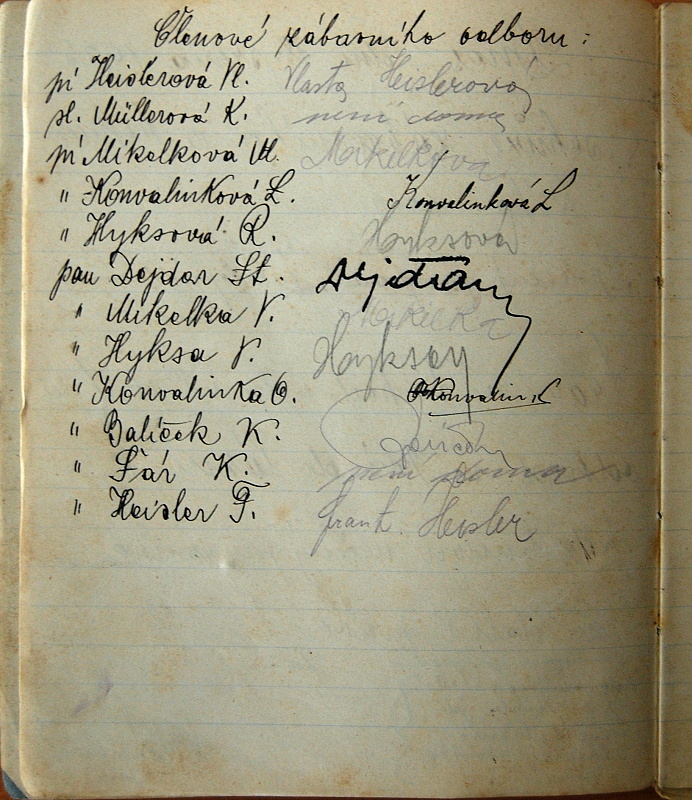 Členové zábavního odboru:
pí Heislerová Vl. Vlasta Heislerová
sl. Müllerová K. není doma
pí Mikelková M. Mikelková
" Konvalinková L. Konvalinková L
" Hyksová R. Hyksová
pan Dejdar St. Dejdar
" Mikelka V. Mikelka
" Hyksa V. Hyksa
" Konvalinka O. OKonvalinka
" Balíček K.
" Fár K. není doma
" Heisler F. Frant. Heisler